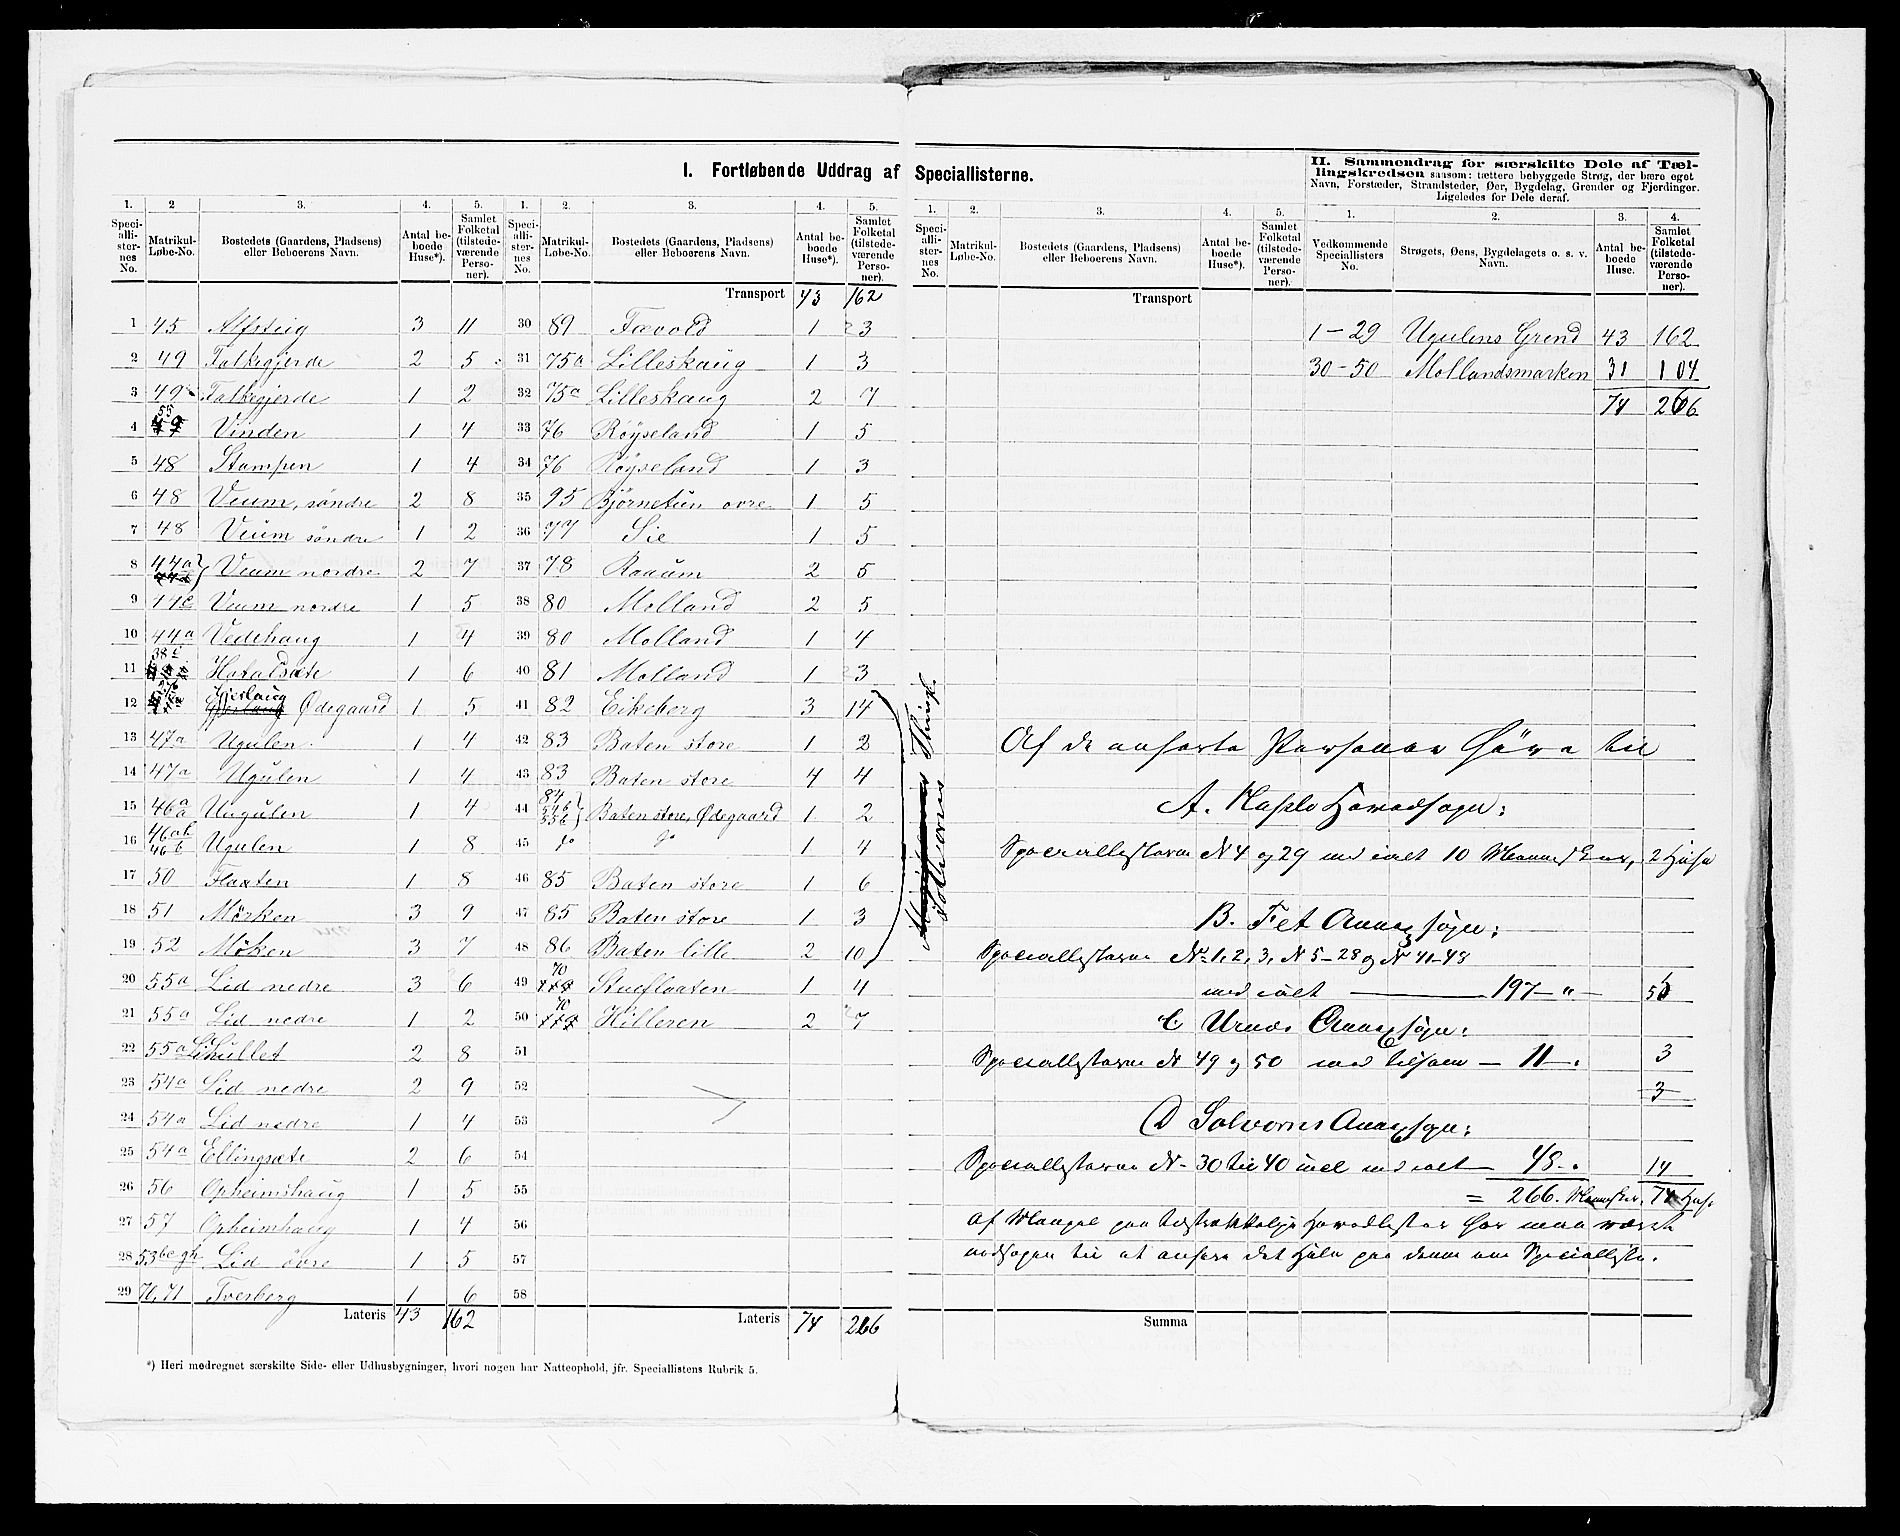 I. Fortløbende Uddrag af Speciallisterne.
1. 2 3. 4. 5. 1. 2. 3. 4. 5.
Speciallisternes No. Matrikul-Løbe-No. Bostedets (Gaardens, Pladsens) eller Beboerens Navn. Antal beboede Huse*). Samlet Folketal (tilstedeværende Personer). Speciallisternes No. Matrikul-Løbe-No. Bostedets (Gaardens, Pladsens) eller Beboerens Navn. Antal beboede Huse*). Samlet Folketal (tilstedeværende Personer).
Transport 43 162
1 45 Alfsteig 3 11
2 49 Falkegjerde 2 5
3 49 Falkegjerde 1 2
4 55 Vinden 1 4
5 48 Stampen 1 4
6 48 Veum, söndre 2 8
7 48 Veum söndre 1 2
8 44a Veum nordre 2 7
9 44c Veum nordre 1 5
10 44a Vedehaug 1 4
11 38c Hatalsæte 1 6
12 Gjerlaug Ødegaard 1 5
13 47a Ugulen 1 4
14 47a Ugulen 1 4
15 46a Ungulen 1 4
16 46ab 46b Ugulen 1 8
17 50 Flaaten 1 8
18 51 Mörken 3 9
19 52 Möken 3 7
20 55a Lid nedre 3 6
21 55a Lid nedre 1 2
22 55a Lihullet 2 8
23 54a Lid nedre 2 9
24 54a Lid nedre 1 4
25 54a Ellingsæte 2 6
26 56 Opheimshaug 1 5
27 57 Opheimhaug 1 4
28 53bcgh Lid övre 1 5
29 70,71 Tverberg 1 6
Lateris 43 162
30 89 Fævold 1 3
31 75a Lilleskaug 1 3
32 75a Lilleskaug 2 7
33 76 Röyseland 1 5
34 76 Röyseland 1 3
35 95 Björnetun ovre 1 5
36 77 Sie 1 5
37 78 Raaum 2 5
38 80 Molland 2 5
39 80 Molland 1 4
40 81 Molland 1 3
41 82 Eikeberg 3 14
42 83 Baten store 1 2
43 83 Baten store 4 4
44 84 54b 55b Baten store, Ødegaard 1 2
45 do do 1 4
46 85 Baten store 1 6
47 85 Baten store 1 3
48 86 Baten lille 2 10
49 70 Stueflaaten 1 4
50 70 Hilleren 2 7
51
52
53
54
55
56
57
58
Lateris 74 266
*) Heri medregnet særskilte Side- eller Udhusbygninger, hvori nogen har Natteophold, jfr. Speciallistens Rubrik 5.
Solvorns Thingl.
1. 2. 3. 4. 5.
Speciallisternes No. Matrikul-Løbe-No. Bostedets (Gaardens, Pladsens) eller Beboerens Navn. Antal beboede Huse*). Samlet Folketal (tilstedeværende Personer).
Transport
II. Sammendrag for særskilte Dele af Tællingskredsen saasom: tættere bebyggede Strøg, der bære eget
Navn, Forstæder, Strandsteder, Øer, Bygdelag, Grender og Fjerdinger.
Ligeledes for Dele deraf.
1. 2. 3. 4.
Vedkommende Speciallisters No. Strøgets, Øens, Bygdelagets o. s. v. Navn. Antal beboede Huse. Samlet Folketal (tilstedeværende Personer).
1-29 Ugulens Grend 43 162
30-50 Mollandsmarken 31 104
74 266
Af de anførte Personer høre til
A. Hafslo Hovedsogn:
Speciallisterne N 4 og 29 med ialt 10 Mennesker, 2 Huse
B. Fet Annexsogn:
Speciallisterne No 1, 2, 3, N 5-28 og N 41-48
med ialt 197 "
C Urnæs Annexsogn:
Speciallisterne N 49 og 50 med tilsam - 11 3
3
D Solvorns Annexsogn:
Speciallisterne N- 30 til 40 incl med ialt 48 14
= 266 Mennesker, 74 Huse
Af Mangel paa tilstrækkelige Hovedlister har man været
nødsagen til at anføre det Hele paa denne ene Specialliste.
Summa